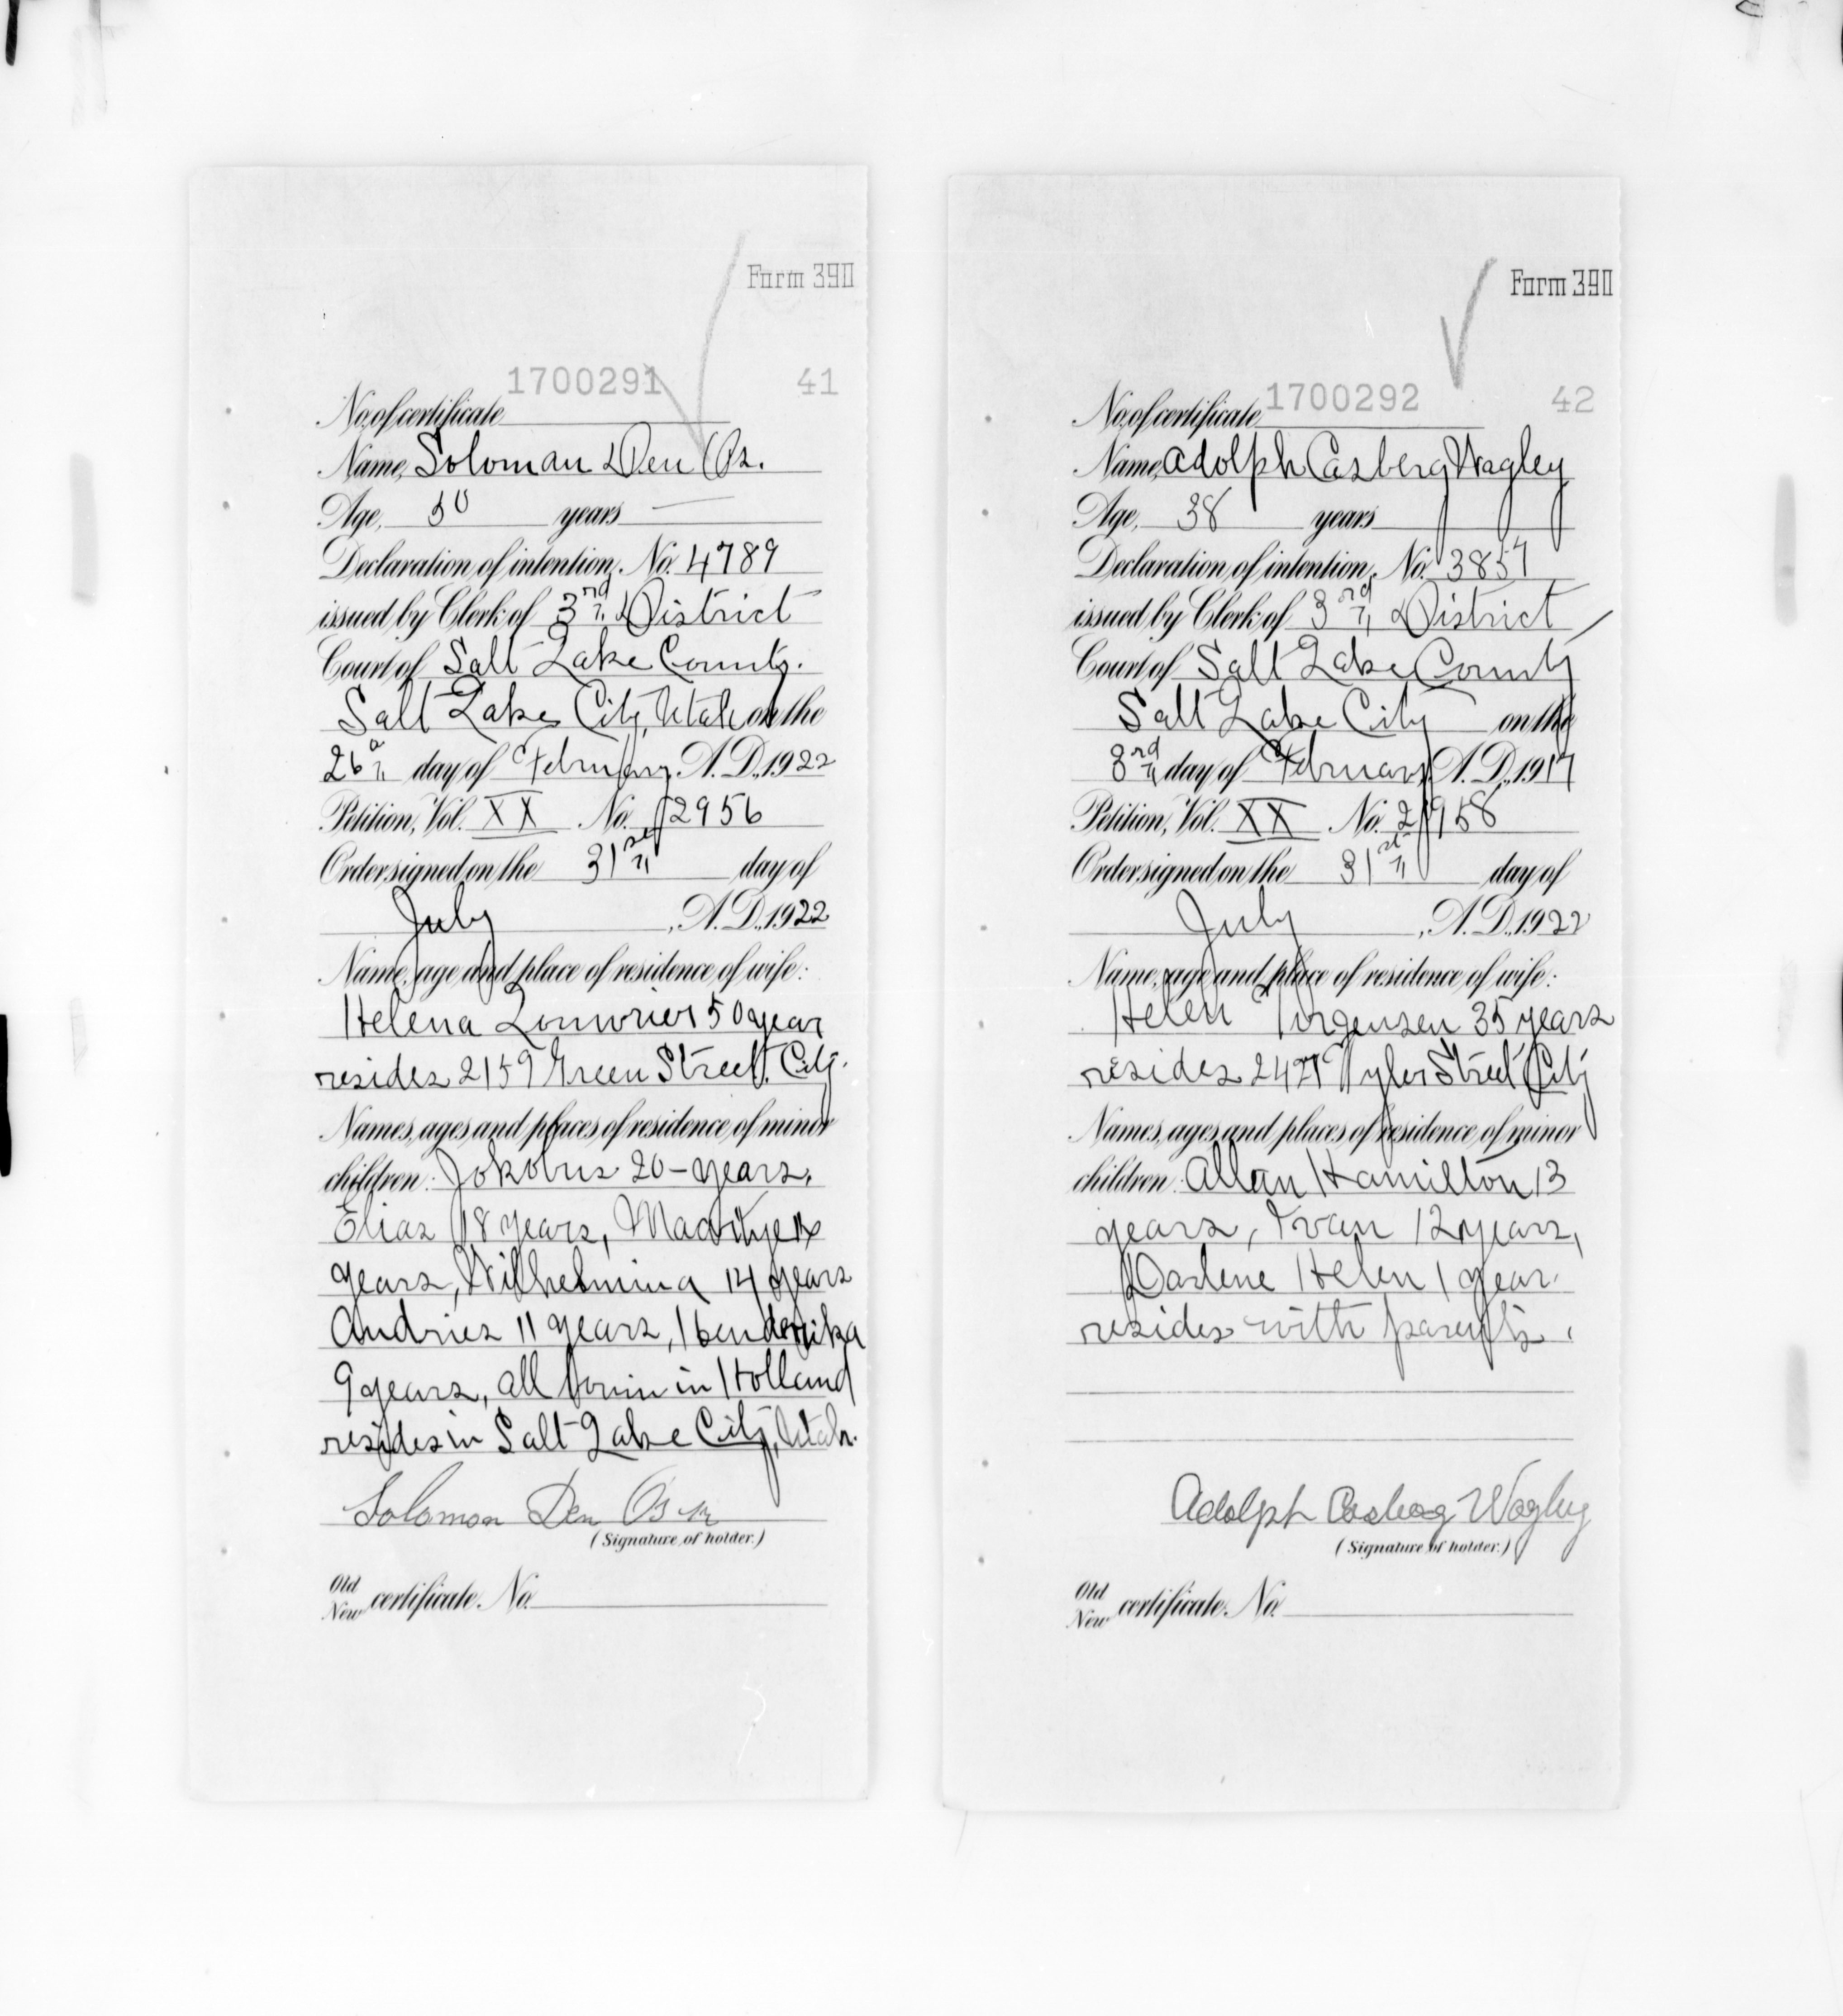 Form 390
1700291 41
No. of certificate
Name, Soloman Den Os.
Age, 50 years
Declaration of intention, No. 4789
issued by Clerk of 3rd District
Court of Salt Lake County.
Salt Lake City, Utah on the
26th day of February, A.D., 1922
Petition, Vol. XX No. 2956
Order signed on the 31st day of
July, A.D., 1922
Name, age and place of residence of wife:
Helena 50 year
resides 2159 Green Street, City.
Names, ages and places of residence of minor
children: Jokobus 20 - years,
Elias 18 years,
years, Wilhelmina 14 years
Andries 11 years,
9 years, all born in Holland
resides in Salt Lake City, Utah.
Solomon Den Os
(Signature of holder.)
Old
New certificate. No.
Form 390
1700292 42
No. of certificate
Name, Adolph Casberg Wagley
Age, 38 years
Declaration of intention, No. 3857
issued by Clerk of 3rd District
Court of Salt Lake County
Salt Lake City on the
3rd day of February A.D., 1917
Petition, Vol. XX No. 2958
Order signed on the 31st day of
July, A.D., 1922
Name, age and place of residence of wife:
Helen Jorgensen 35 years
resides 2427 Tyler Street City
Names, ages and places of residence of minor
children: Allan Hamilton 13
years, Ivan 12 years,
Darlene Helen 1 year.
resides with parents.
Adolph Casberg Wagley
(Signature of holder.)
Old
New certificate. No.